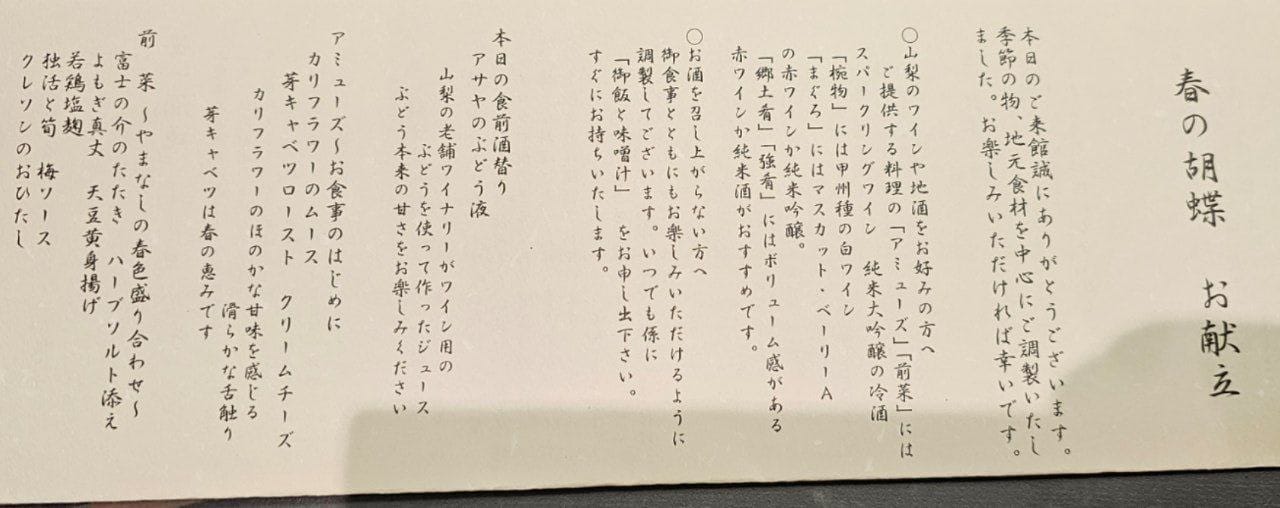 春の胡蝶　お献立
本日のご来館誠にありがとうございます。
季節の物、地元食材を中心にご調製いたし
ました。お楽しみいただければ幸いです。
〇山梨のワインや地酒をお好みの方へ
ご提供する料理の「アミューズ」「前菜」には
スパークリングワイン　純米大吟醸の冷酒
「椀物」には甲州種の白ワイン
「まぐろ」にはマスカット・ベーリーA
の赤ワインか純米吟醸。
「郷土肴」「強肴」にはボリューム感がある
赤ワインか純米酒がおすすめです。
〇お酒を召し上がらない方へ
御食事とともにもお楽しみいただけるように
調製してございます。いつでも係に
「御飯と味噌汁」をお申し出下さい。
すぐにお持ちいたします。
本日の食前酒替り
アサヤのぶどう液
山梨の老舗ワイナリーがワイン用の
ぶどうを使って作ったジュース
ぶどう本来の甘さをお楽しみください
アミューズ〜お食事のはじめに
カリフラワーのムース
芽キャベツロースト　クリームチーズ
カリフラワーのほのかな甘味を感じる
滑らかな舌触り
芽キャベツは春の恵みです
前　菜　〜やまなしの春色盛り合わせ〜
富士の介のたたき　ハーブソルト添え
よもぎ真丈　天豆黄身揚げ
若鶏塩麹
独活と筍　梅ソース
クレソンのおひたし